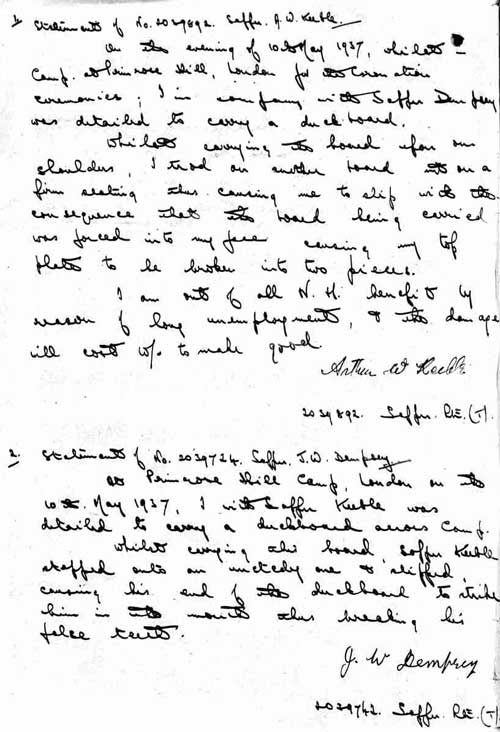 1. Statement of No. 2039892. Sapper. A. W. Keeble.
On the evening of 10th May 1937, whilst in
Camp at Primrose Hill, London for the Coronation
ceremonies, I in company with Sapper Dempsey
was detailed to carry a duckboard.
Whilst carrying the board upon our
shoulders, I trod on another board not on a
firm seating thus causing me to slip with the
consequence that the board being carried
was forced into my face causing my top
plate to be broken into two pieces.
I am out of all N. H. benefit by
reason of long unemployment, & the damage
will cost to make good
Arthur W Keeble
2039892. Sapper. R.E. (T).
2. Statement of No. 2039724. Sapper. J. W. Dempsey
At Primrose Hill Camp, London on the
10th. May 1937, I with Sapper Keeble was
detailed to carry a duckboard across Camp.
Whilst carrying the board, Sapper Keeble
stepped onto an unsteady one & slipped,
causing his end of the duckboard to strike
him in the mouth thus breaking his
false teeth.
J. W Dempsey
Sapper. R.E. (T)